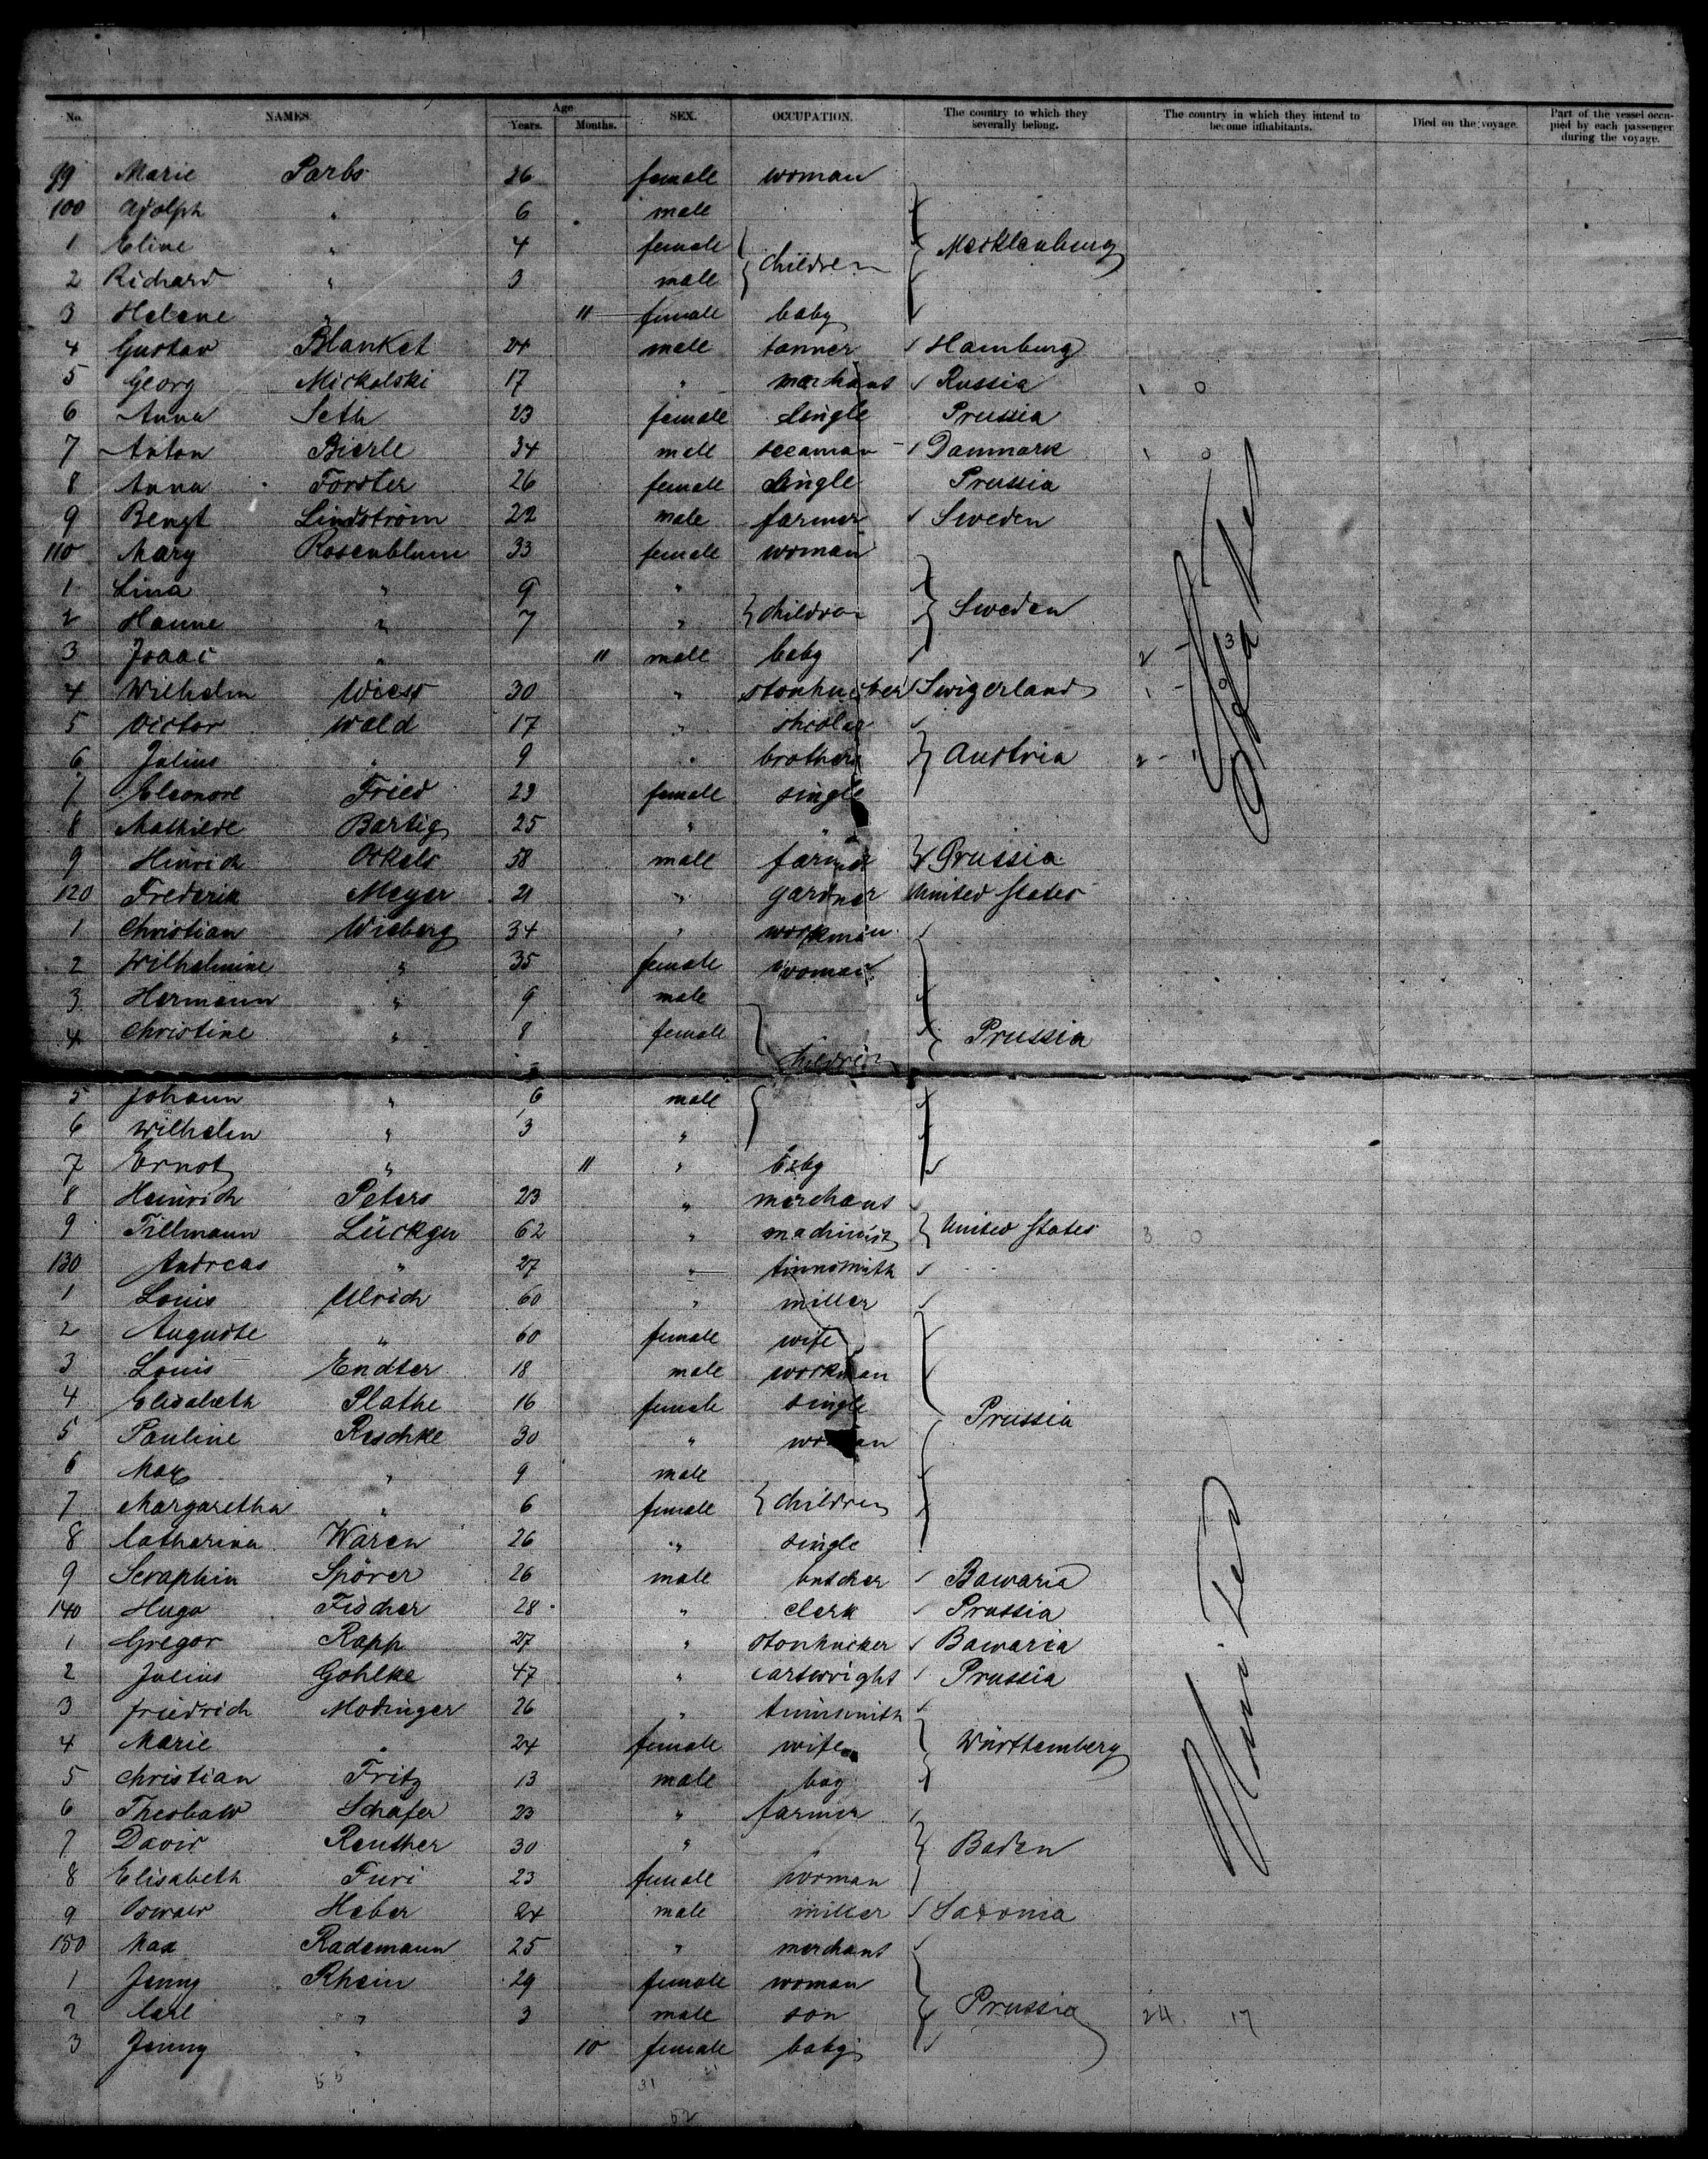 No. NAMES. Age Years. Months. SEX. OCCUPATION. The country to which they severally belong. The country in which they intend to become inhabitants. Died on the voyage. Part of the vessel occupied by each passenger during the voyage.
99 Marie Parbs 26 female woman
100 Adolph " 6 male
1 Eline " 4 female children Mecklenburg
2 Richard " 3 male
3 Helene " 11 female baby
4 Gustav Blanket 24 male tanner Hamburg
5 Georg Mickalski 17 " merchant Russia 1 0
6 Anna Seth 23 female single Prussia
7 Anton Bierle 34 male seeaman Danmark 1 0
8 Anna Forster 26 female single Prussia
9 Bengt Lindström 22 male farmer Sweden
110 Mary Rosenblum 33 female woman
1 Lina " 9 "
2 Hanne " 7 " children Sweden
3 Isaac " 11 male baby 2 3
4 Wilhelm Wiess 30 " Swizerland 1 0
5 Victor Wald 17 "
6 Julius " 9 " brothers Austria 2
7 Eleonore Fried 23 female single
8 Mathilde Bartig 25 " "
9 Hinrich Ockels 58 male farmer Prussia
120 Frederik Meyer 21 " gardner United States
1 Christian Wieberg 34 " workman
2 Wilhelmine " 35 female woman
3 Hermann " 9 male
4 Christine " 8 female Prussia
children
5 Johann " 6 male
6 Wilhelm " 3 "
7 Ernst " 11 " baby
8 Heinrich Peters 23 " merchant
9 Tillmann Lückgen 62 " machinist United States 3 0
130 Andreas " 27 " tinnsmith
1 Louis Ulrich 60 " miller
2 Auguste " 60 female wife
3 Louis Endter 18 male workman
4 Elisabeth Plathe 16 female single Prussia
5 Pauline Reschke 30 " woman
6 Max " 9 male
7 Margaretha " 6 female children
8 Catharina Waren 26 " single
9 Seraphin Spörer 26 male butcher Bawaria
140 Hugo Fischer 28 " clerk Prussia
1 Gregor Rapp 27 " stonhucker Bawaria
2 Julius Gohlke 47 " cartwright Prussia
3 Friedrich Modinger 26 " tinnsmith
4 Marie " 24 female wife Württemberg
5 Christian Fritz 13 male boy
6 Theobald Schafer 23 " farmer
7 David Reuther 30 " " Baden
8 Elisabeth Furi 23 female woman
9 Oswald Heber 24 male miller Saxonia
150 Max Rademann 25 " merchant
1 Jenny Rhein 29 female woman
2 Carl " 3 male son Prussia 24 17
3 Jenny " 10 female baby
55 31
52